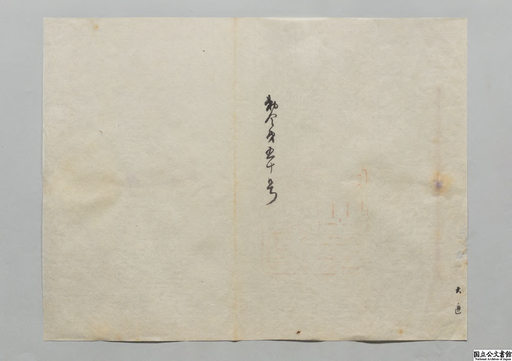 勅令第五十号
国立公文書館
National Archives of Japan